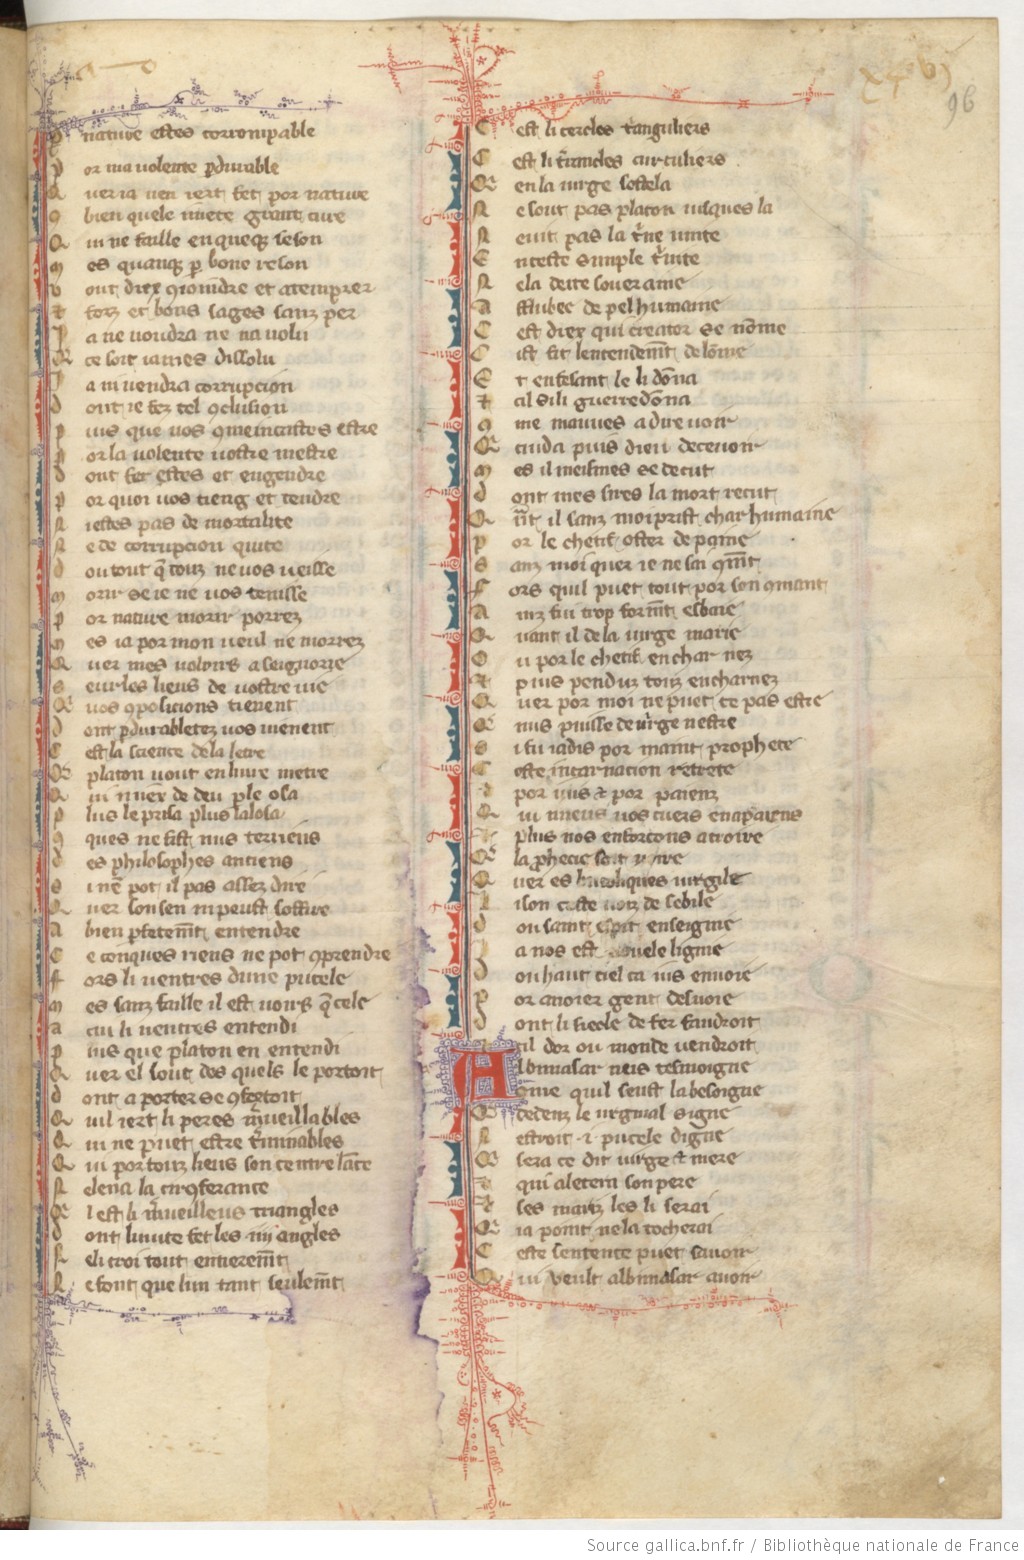 xcvi
96
P nature estes corrompable
P or ma volente pdurable
Q ue ia nen iert fet por nature
C bien quele mete grant cure
Q ui ne faille en queqz seson
M es quanqz p bone reson
V ont diex 9ioindre et atemprer
F orz et bons sages sanz per
I a ne voudra ne na volu
Q ce soit iames dissolu
I a ni vendra corrupcion
D ont ie fez tel 9clusion
P uis que vos 9mencastes estre
P or la volente vostre mestre
D ont fet estes et engendre
P or quoi vos tieng et tendre
N iestes pas de mortalite
N e de corrupcion quite
D ou tout q touz ne vos veisse
M orir se ie ne vos tenisse
P or nature morir porrez
M es ia por mon veul ne morrez
Q uer mes voloirs a seignorie
S eur les liens de vostre vie
Q vos 9posicions tienent
D ont pdurabletez vos vienent
C est la science de la letre
Q platon vout en livre metre
Q ui miex de deu ple osa
P lus le prisa plus lalosa
9 ques ne fist nus terriens
D es philosophes anciens
S i nen pot il pas assez dire
Q uer son sen ni peust soffire
A bien pfetemt entendre
C e conques riens ne pot 9prendre
F ors li ventres dune pucele
M es sanz faille il est voirs q cele
A cui li ventres entendi
P lus que platon en entendi
Q uer el sout des quels le portoit
D ont a porter se 9fortoit
Q uil iert li peres mveillables
Q ui ne puet estre tminables
Q ui por touz lieus son centre lance
N e lieu la circ9ferance
Q l est li mveilleus triangles
D ont lunite fet les iij angles
N eli troi tout entieremt
N e font que lun tant seulemt
C est li cercles trianguliers
C est li triancles curculiers
Q en la virge sostela
N e sout pas platon iusques la
N e vit pas la trine unite
E n ceste simple trinite
N e la deite soveraine
A ffublee de pel humaine
C est diex qui creator se nome
C ist fit lentendemt de lome
E t en fesant le li dona
E t cil si li guerredona
9 me mauves a dire voir
Q cuida puis dieu decevoir
M es il meismes se decut
D ont mes sires la mort recut
Q nt il sanz moi prist char humaine
P or le chetif oster de paine
S anz moi quer ie ne sai qmt
F ors quil puet tout por son 9mant
A inz fui trop formt esbaie
Q uant il de la virge marie
O u por le chetif en char nez
E t puis penduz touz encharnez
Q uer por moi ne puet ce pas estre
Q nus puisse de virge nestre
S i fu iadis por maint prophete
C este incarnacion retrete
E t por iuis et por paienz
Q ui mieus vos cuers en apaiens
E t plus nos enforcons a croire
Q la prophecie soit voire
Q uer es bucoliques virgile
L ison ceste voiz de sebile
D ou saint espit enseigne
I a nos est novele ligne
D ou haut ciel ca ius envoie
P or avoier gent desvoie
D ont li siecle de fer faudront
E t cil dor ou monde vendront
A lbumasar neis tesmoigne
C ome quil seust la besoigne
Q dedenz le virginal signe
N estroit i pucele digne
Q sera ce dit virge et mere
E t qui aletera son pere
E t ses mariz les li serai
Q ia point ne la tochera
C este sentence puet savoir
Q ui veult albumasar avoir
Source gallica.bnf.fr / Bibliothèque nationale de France